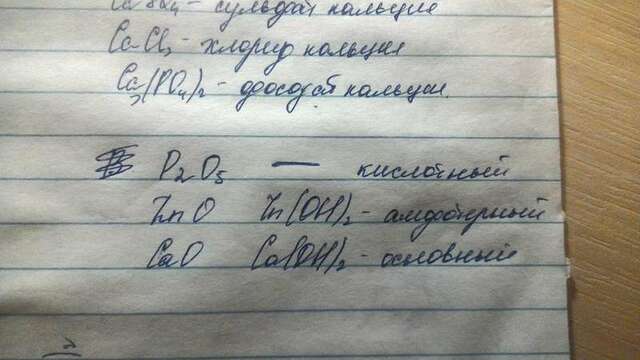 CaSO4 - сульфат кальция
CaCl2 - хлорид кальция
Ca3(PO4)2 - фосфат кальция.
P2O5 — кислотный
ZnO Zn(OH)2 - амфотерный
CaO Ca(OH)2 - основный